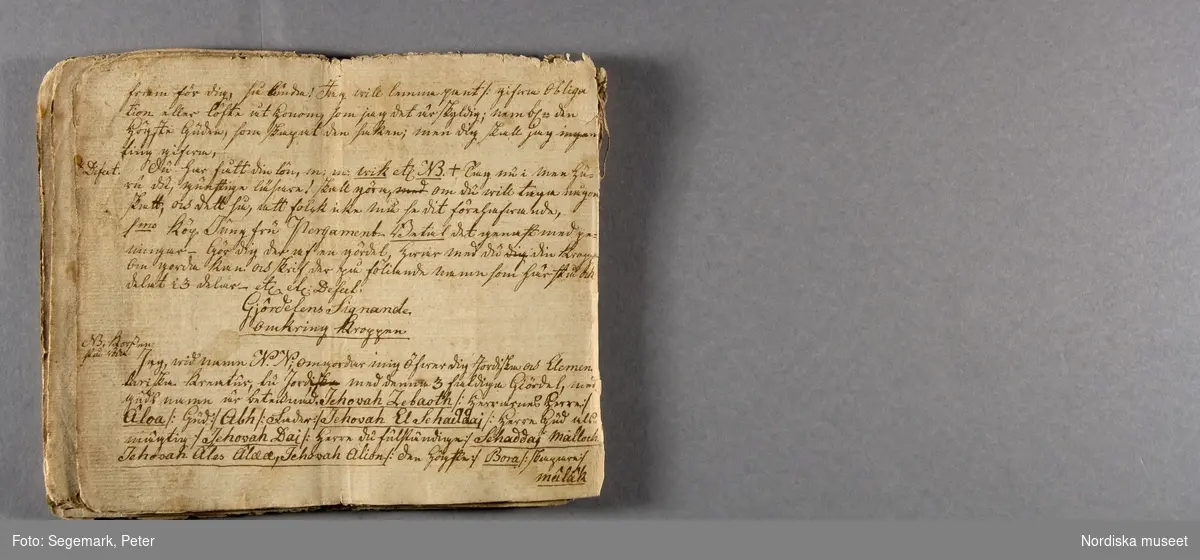 fram för dig, su lända! Jag will lemna pant /: gifwa Obliga
tion eller löfte åt honom som jag det är skyldig; nembl: den
Högste Guden, som skapat den saken; men dig skall jag ingen
ting gifwa,
Defect. Du har fått din lön, m: m: wik etc NB. + Tag nu i men hu-
ru du, gunstige läsare! skall göra, med om du will taga någon
skatt, och dett så, att folck icke må se dit förehafwande,
1mo Köp Jungfru Pergament - Betal det genast med pe-
ningar - Gör dig der af en gördel, hwar med du dig din kropp
om gjorda kan och skrif der på följande namn som här stå
delat i 3 delar - etc etc: Defect:
Gjördelens Signande
omkring Kroppen
NB. Korssen
Jag, wid namn N. N; omgjordar mig öfwer dig Jordiska och Elemen
tariska Kreatur, tu Jordiska med denna 3 faldiga Gjördel, med
Guds namn är betecknad. Jehovah Zebaoth /: Herrarnes Herre:/
Aloa /: Gud:/ Abh /: Fader:/ Jehovah El Schaddaj /: Herre Gud als
mägtig:/ Jehovah Daj /: Herre du fulkundige:/ Schaddaj Malloch
Jehovah Ales Alææ, Jehovah Alion /: den Högste:/ Bora /: Skapare:/
mäläk
Foto: Segemark, Peter
Nordiska museet